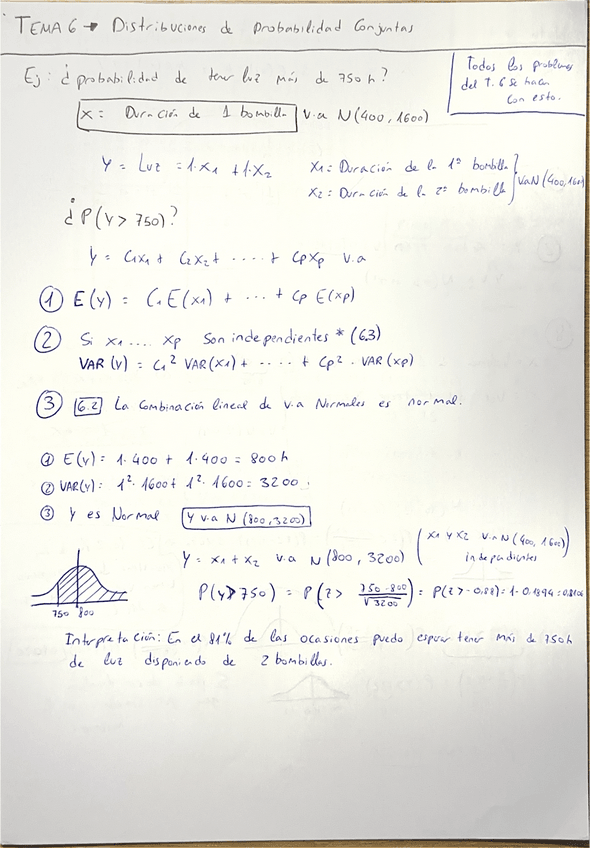 TEMA 6 → Distribuciones de Probabilidad Conjuntas
Ej: ¿probabilidad de tener luz más de 750h?
Todos los problemas
del T. 6 se hacen
con esto.
X = Duración de 1 bombilla v.a N(400, 1600)
Y = Luz = 1·X1 + 1·X2
X1 = Duración de la 1ª bombilla
X2 = Duración de la 2ª bombilla
} v.a N(400, 1600)
¿P(Y > 750)?
Y = C1X1 + C2X2 + ····· + CpXp v.a
① E(Y) = C1 E(X1) + ··· + Cp E(Xp)
② Si X1 .... Xp son independientes * (6.3)
VAR(Y) = C1² VAR(X1) + ····· + Cp² · VAR(Xp)
③ 6.2 La Combinación lineal de v.a Normales es normal.
① E(Y) = 1·400 + 1·400 = 800h
② VAR(Y) = 1²·1600 + 1²·1600 = 3200
③ Y es Normal Y v.a N(800, 3200)
Y = X1 + X2 v.a N(800, 3200) (X1 y X2 v.a N(400, 1600) independientes)
P(Y > 750) = P(Z > 750-800/√3200) = P(Z > -0,88) = 1 - 0.1894 = 0.8106
750 800
Interpretación: En el 81% de las ocasiones puedo esperar tener más de 750h
de luz disponiendo de 2 bombillas.